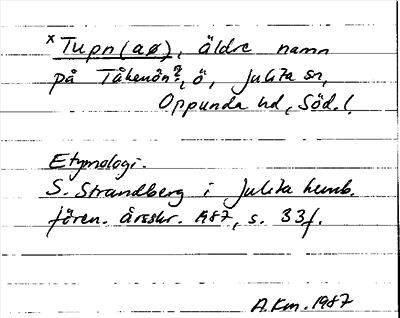 x Tupn (aø), äldre namn
på Tåkenön?, ö, Julita sn,
Oppunda hd, Söd. l.
Etymologi.
S. Strandberg i Julita hemb.
fören. årsskr. 1987, s. 33 f.
A.Km. 1987